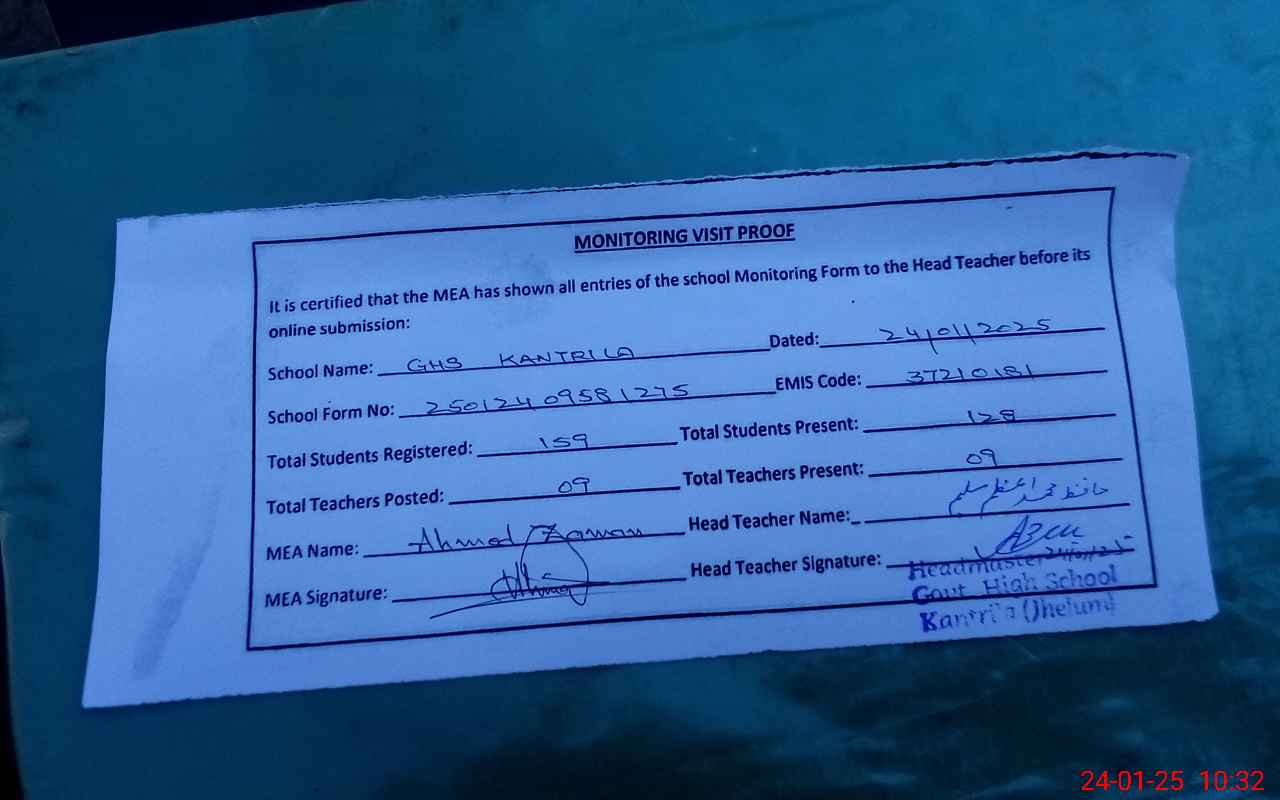 MONITORING VISIT PROOF
It is certified that the MEA has shown all entries of the school Monitoring Form to the Head Teacher before its
online submission:
School Name: GHS KANTRILA Dated: 24/01/2025
School Form No: 25012409581275 EMIS Code: 37210181
Total Students Registered: 159 Total Students Present: 128
Total Teachers Posted: 09 Total Teachers Present: 09
MEA Name: Ahmed Zaman Head Teacher Name: حافظ محمد اعظم سلیم
MEA Signature: Head Teacher Signature: 24/01/25
Headmaster
Govt High School
Kantrila (Jhelum)
24-01-25 10:32